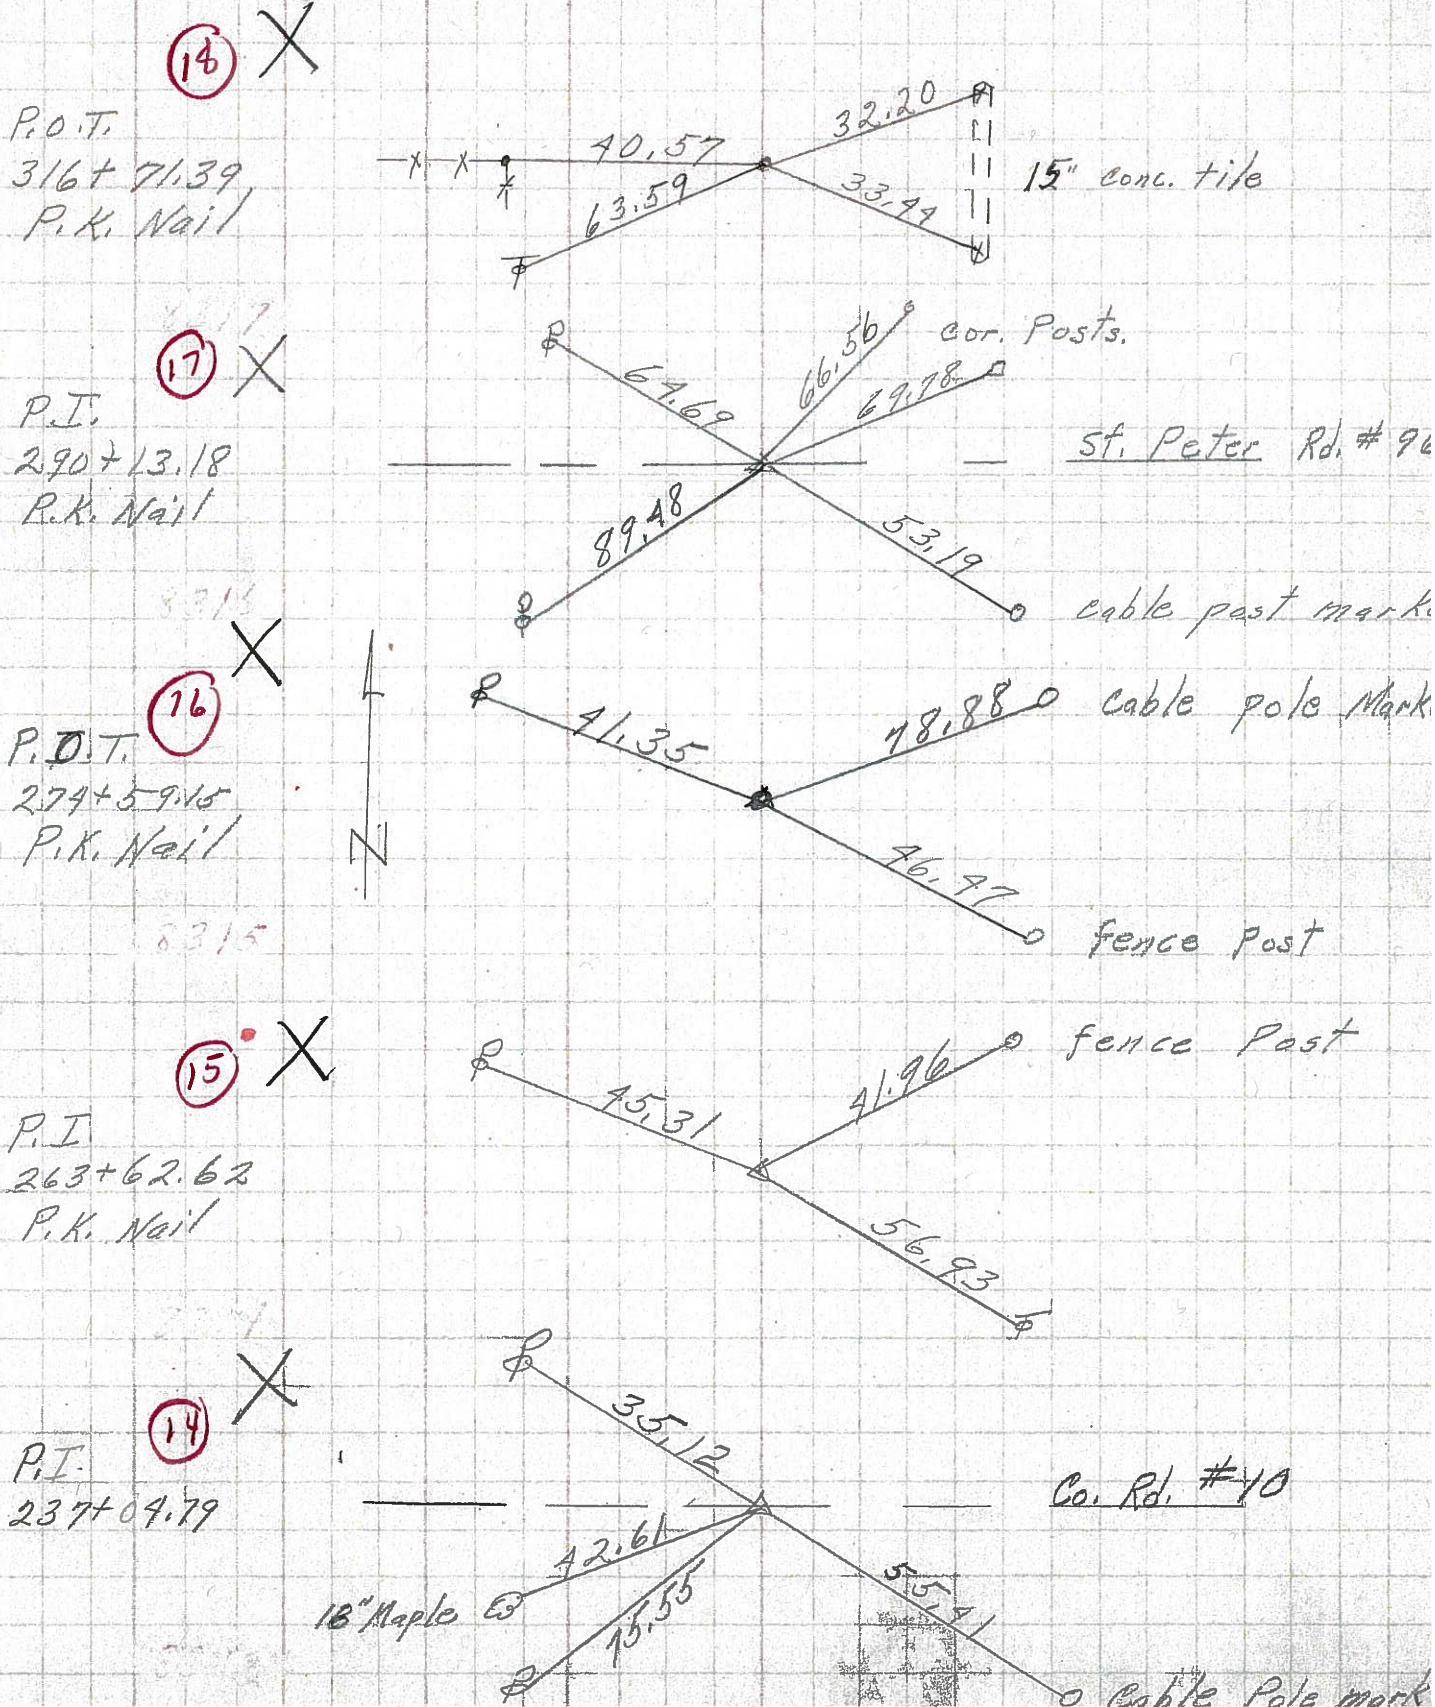 18 X
P.O.T.
316+71.39
P.K. Nail
40.57
63.59
32.20
33.44
15" conc. tile
17 X
P.I.
290+13.18
P.K. Nail
64.69
66.56
cor. Posts.
69.78
St. Peter Rd. # 96
89.48
53.19
cable post mark
16 X
P.O.T.
274+59.15
P.K. Nail
N
41.35
78.88
Cable pole Mark
46.47
fence Post
8315
15 X
P.I.
263+62.62
P.K. Nail
45.31
41.96
fence Post
56.93
14 X
P.I.
237+04.79
35.12
Co. Rd. #10
42.61
18" Maple
75.55
55.41
Cable Pole mark